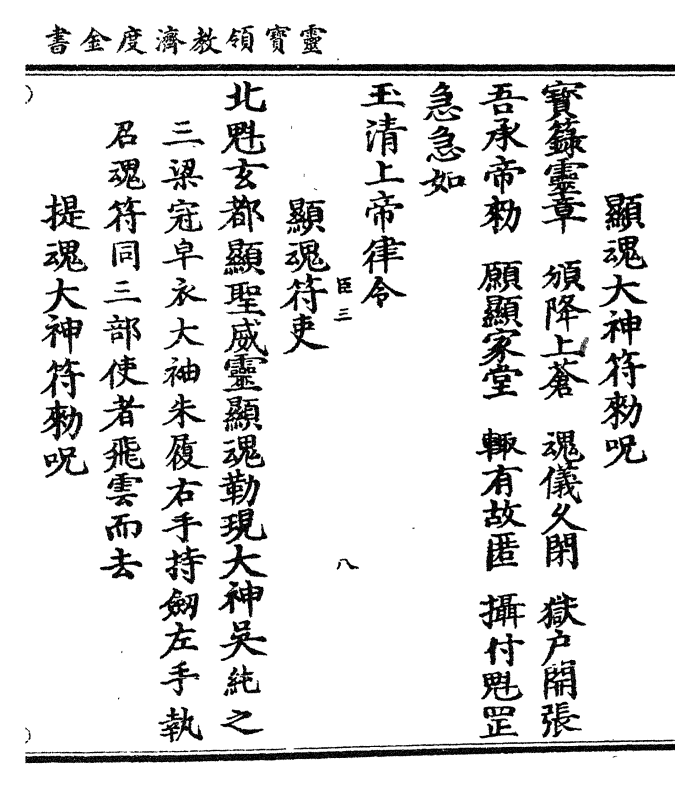 靈寶領教濟度金書
顯魂大神符勑呪
寶籙靈章 頒降上蒼 魂儀久閉 獄户開張
吾承帝勑 願顯家堂 輙有故匿 攝付魁罡
急急如
玉清上帝律令
臣三
八
顯魂符吏
北魁玄都顯聖威靈顯魂勒現大神吳純之
三梁冠皁衣大袖朱履右手持劔左手執
召魂符同三部使者飛雲而去
提魂大神符勑呪